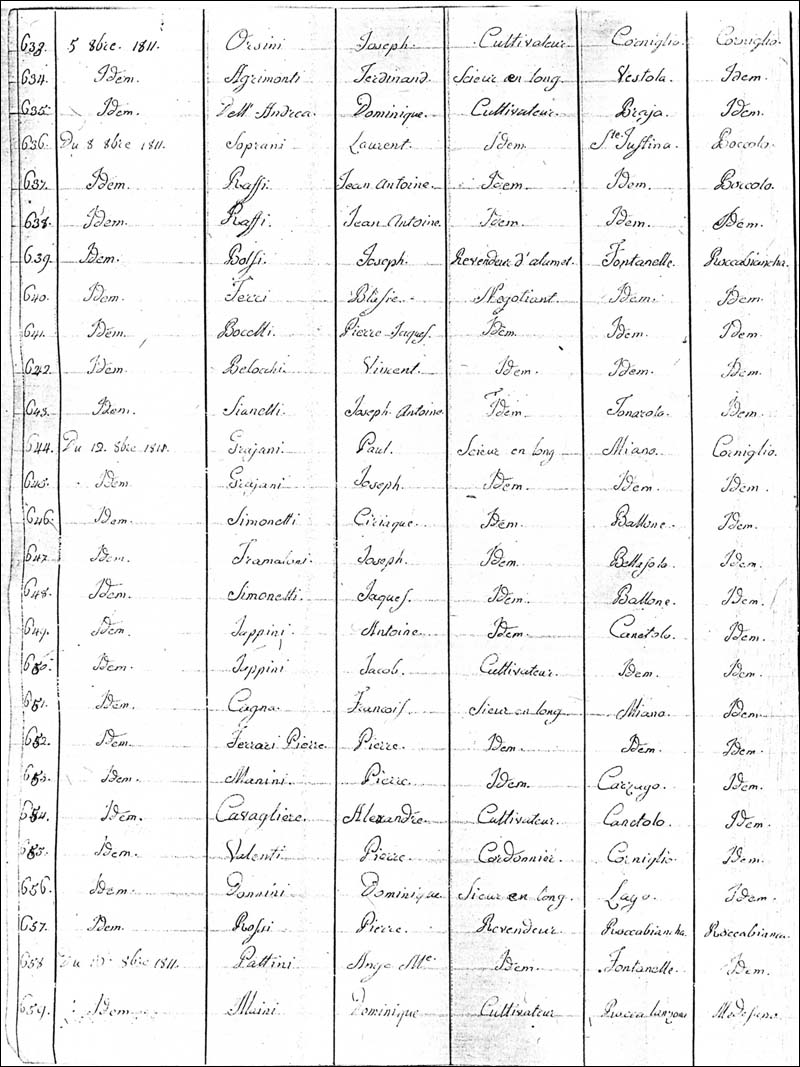 633. 5 8bre. 1811. Orsini Joseph. Cultivateur Corniglio. Corniglio.
634. Idem. Agrimonti Ferdinand. Scieur en long. Vestola. Idem.
635. Idem. Dell' Andrea. Dominique. Cultivateur. Braja. Idem.
636. Du 8 8bre 1811. Soprani Laurent. Idem. Ste. Justina. Boccolo.
637. Idem. Raffi. Jean Antoine. Idem. Idem. Boccolo.
638. Idem. Raffi. Jean Antoine. Idem. Idem. Idem.
639. Idem. Bolsi. Joseph. Revendeur d'alumet. Fontanelle. Roccabiancha.
640. Idem. Terci Blésie. Négotiant. Idem. Idem.
641. Idem. Bocelli. Pierre Jaques. Idem. Idem. Idem.
642. Idem. Belocchi. Vincent. Idem. Idem. Idem.
643. Idem. Sianelli. Joseph Antoine. Idem. Tonarolo. Idem.
644. Du 12. 8bre 1811. Grajani. Paul. Scieur en long Miano. Corniglio.
645. Idem Grajani Joseph. Idem. Idem. Idem.
646. Idem. Simonetti Ciriaque. Idem. Ballone. Idem.
647. Idem. Tramaloni. Joseph. Idem. Bellasola. Idem.
648. Idem. Simonetti. Jaques. Idem. Ballone. Idem.
649. Idem. Juppini Antoine. Idem. Canetolo. Idem.
650. Idem. Juppini Jacob. Cultivateur. Idem. Idem.
651. Idem. Cagna. Francois. Sieur en long. Miano. Idem.
652. Idem. Ferrari Pierre Pierre. Idem. Idem. Idem.
653. Idem. Manini. Pierre. Idem. Carzago. Idem.
654. Idem. Cavagliere. Alexandre. Cultivateur. Canetolo. Idem.
655. Idem. Valenti Pierre. Cordonnier. Corniglio Idem.
656. Idem. Donnini Dominique. Sieur en long. Lago. Idem.
657. Idem. Rossi Pierre. Revendeur. Roccabiancha Roccabianca.
658 8bre 1811. Pattini Ange Me. Idem. Fontanelle. Idem.
659. Idem Maini Dominique Cultivateur Rocca Medesano